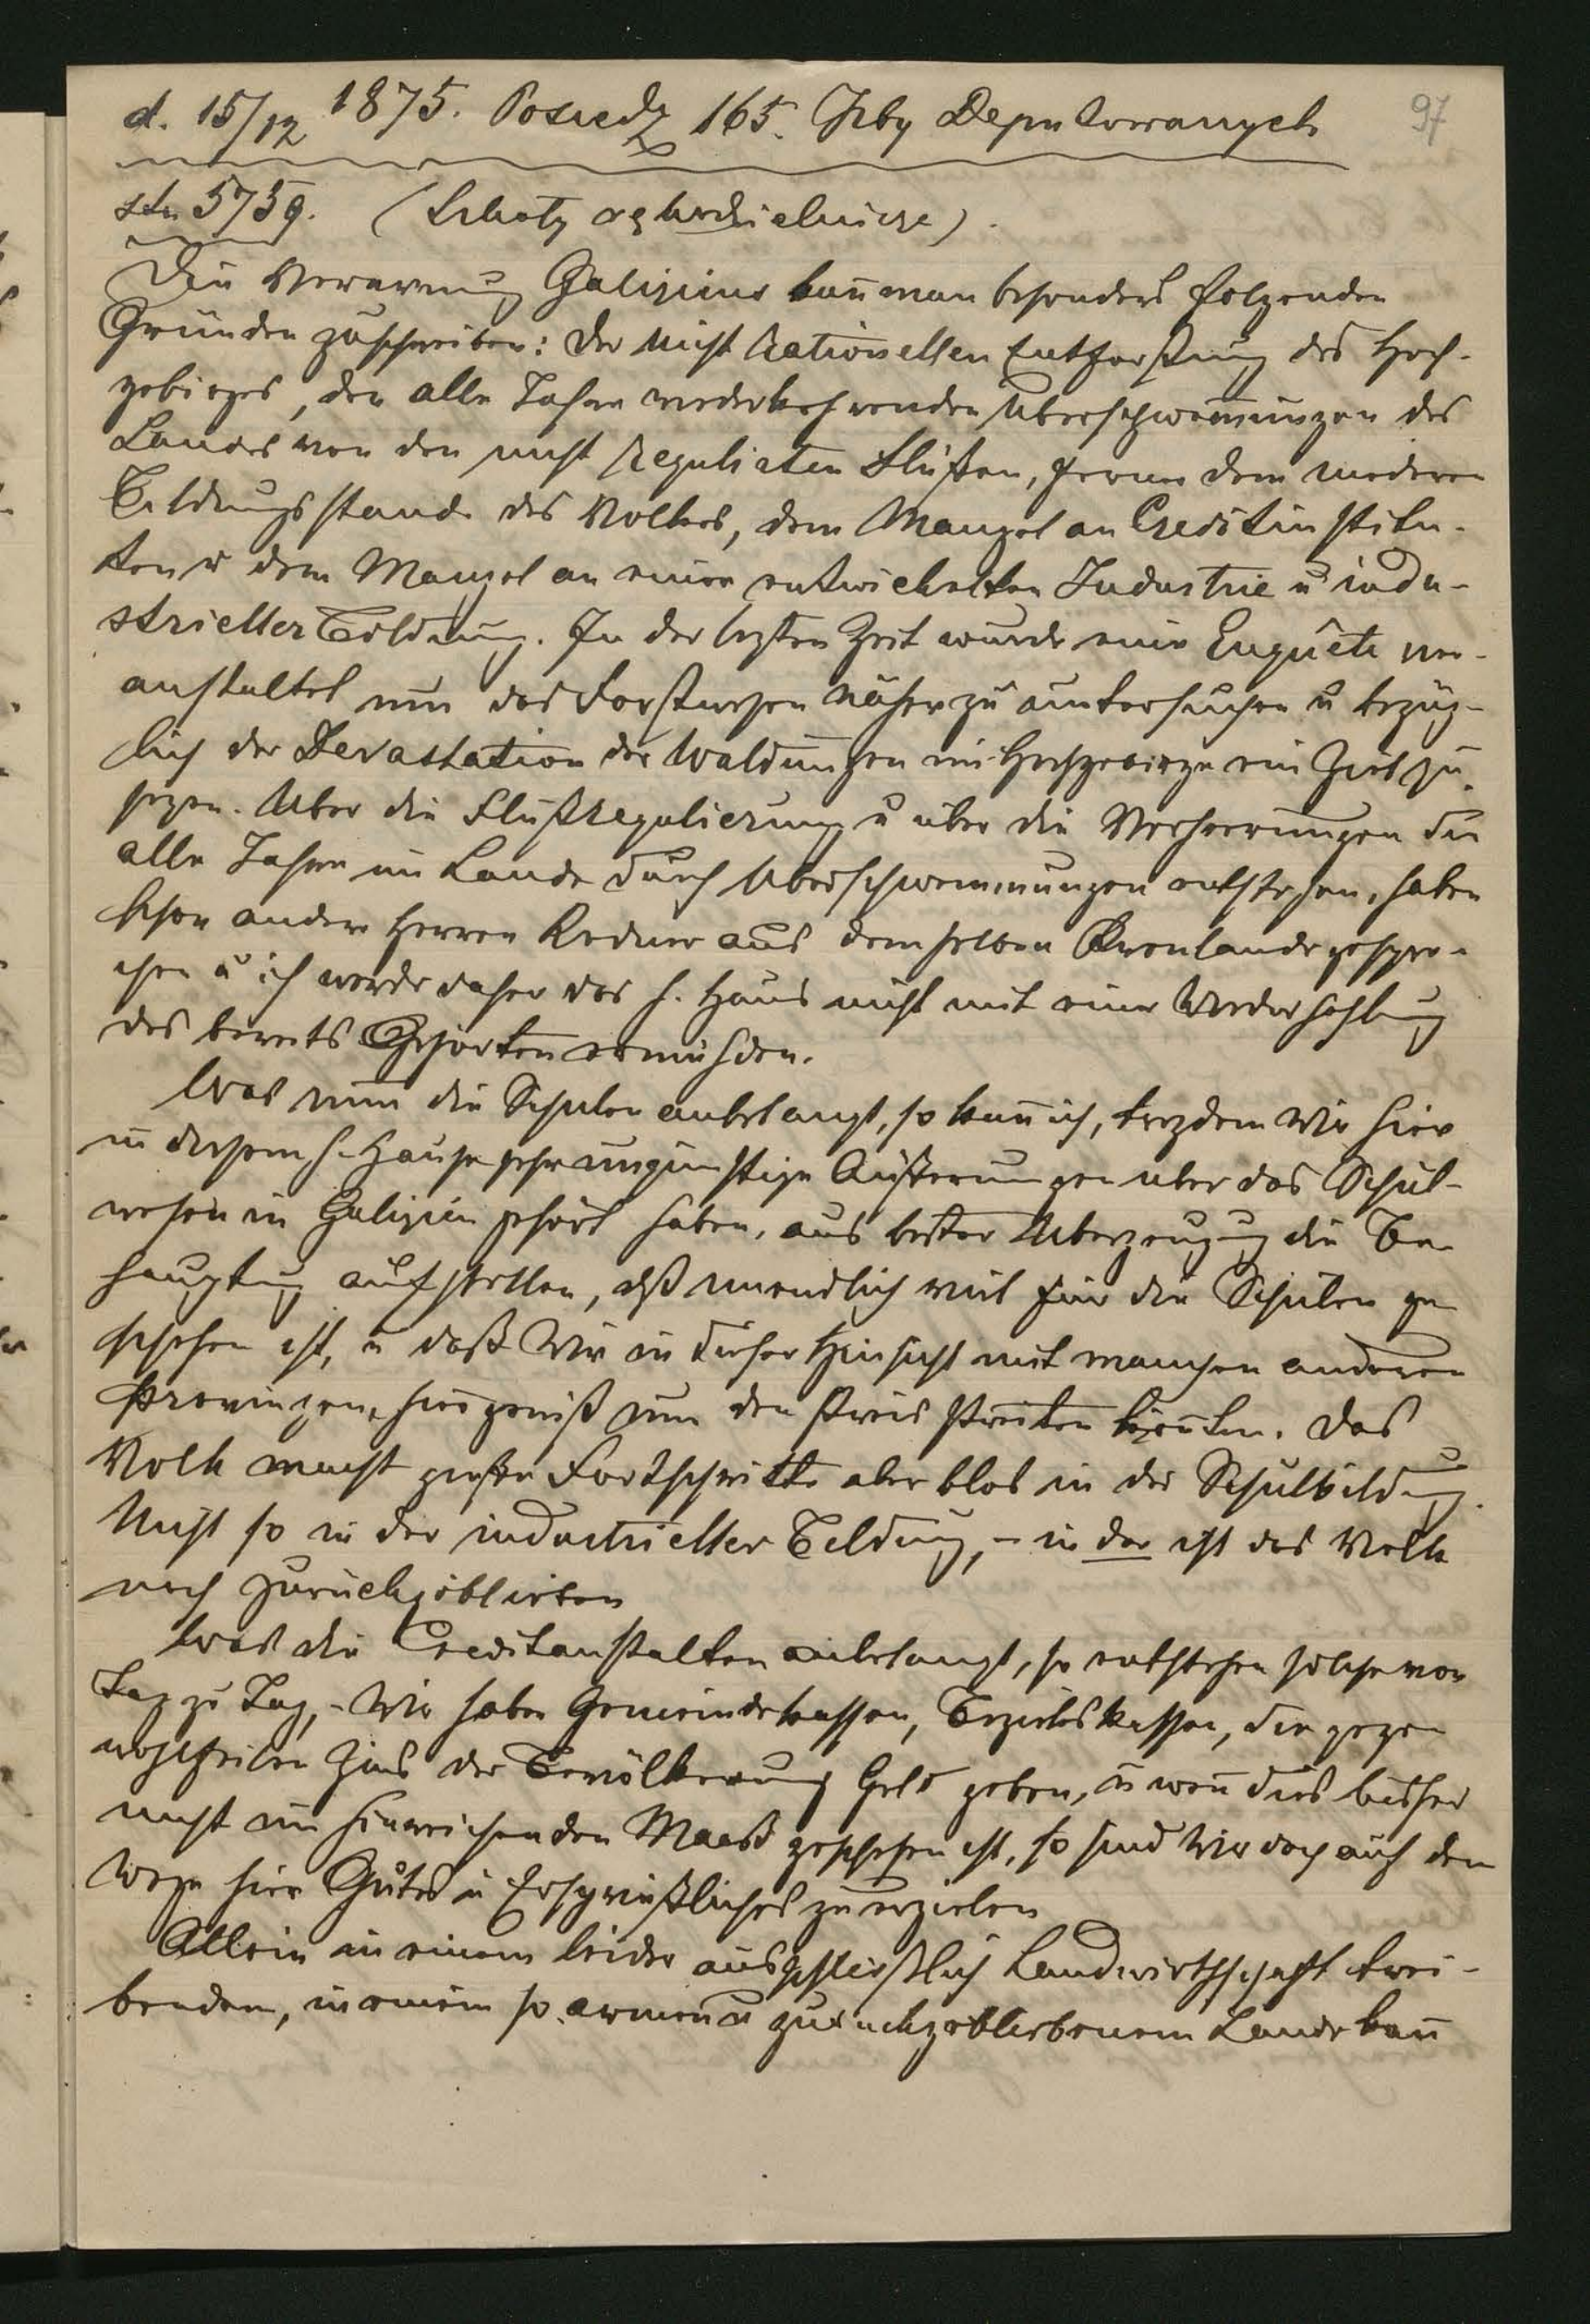 d. 15/12 1875. Posiedz 165. Izby Deputowanych 97
str. 5759. (Szkoły rękodzielnicze).
Die Verarmung Galiziens kan̄ man besonders folgenden
Gründen zuschreiben: der nicht rationellen Entforstung des Hoch-
gebirges, den alle Jahre wiederkehrenden Überschwem̄ungen des
Landes von den nicht regulirten Flüßen, ferner dem niederen
Bildungsstande des Volkes, dem Mangel an Creditinstitu-
ten u dem Mangel an einer entwickelten Industrie u indu-
strieller Bildung. In der lezten Zeit wurde eine Enquête ver-
anstaltet um das Forstwesen näher zu untersuchen u bezüg-
lich der Devastation der Waldungen im Hochgebirge ein Ziel zu
sezen. Über die Flußregulierung u über die Verheerungen die
alle Jahre im Lande durch Überschwemmungen entstehen, haben
schon andere Herren Redner aus demselben Kronlande gespro-
chen u ich werde daher das h. Haus nicht mit einer Wiederhohlung
des bereits Gehörten ermühden.
Was nun die Schulen anbelangt, so kan̄ ich, trozdem wir hier
in diesem h. Hause sehr ungünstige Äußerungen über das Schul-
wesen in Galizien gehört haben, aus bester Überzeugung die Be-
hauptung aufstellen, dß unendlich viel für die Schulen ge
schehen ist, u daß wir in dieser Hinsicht mit manchen anderen
Provinzen, hier gewiß um den Preis streiten kön̄ten. Das
Volk macht große Fortschritte aber blos in der Schulbildung.
Nicht so in der industrieller Bildung, - in der ist das Volk
noch zurückgeblieben
Was die Creditanstalten anbelangt, so entstehen solche von
Tag zu Tag, - Wir haben Gemeindekassen, Bezirkskassen, die gegen
wohlfeilen Zins der Bevölkerung Geld geben, u wen̄ dies bisher
nicht im hinreichenden Maaß geschehen ist, so sind wir doch auf dem
Wege hier Gutes u Ersprießliches zu erzielen
Allein in einem leider ausschließlich Landwirthschaft trei-
benden, in einem so armen u zurückgebliebenem Lande kan̄